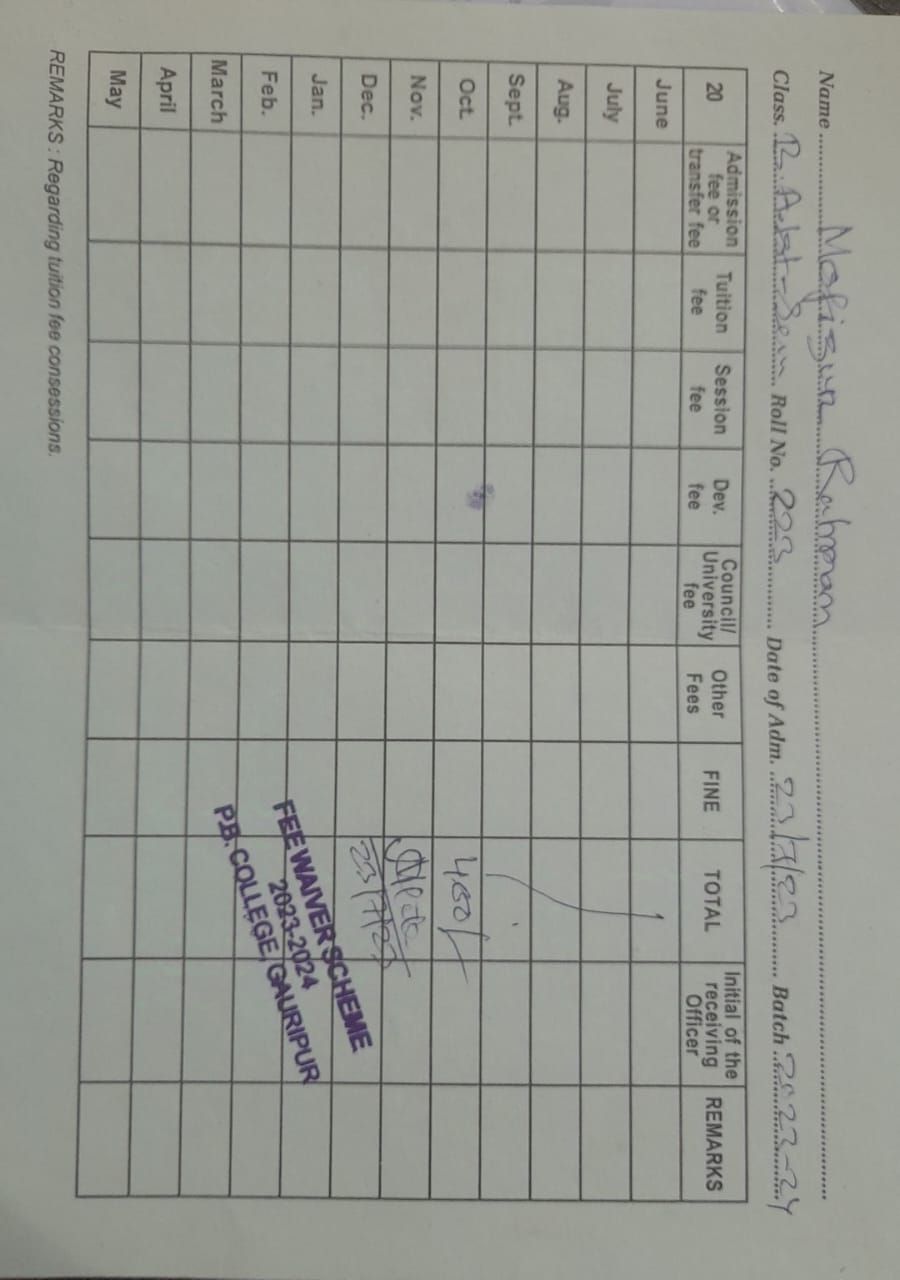 Name ........ Mofizur Rahman ........
Class. B.A. 1st - Sem Roll No. 223 Date of Adm. 23/7/23 Batch 2023-24
20 Admission fee or transfer fee Tuition fee Session fee Dev. fee Council/ University fee Other Fees FINE TOTAL Initial of the receiving Officer REMARKS
June
July
Aug.
Sept.
Oct. 450/-
Nov.
Dec. 23/7/23
Jan.
Feb.
March
April
May
FEE WAIVER SCHEME
2023-2024
P.B. COLLEGE, GAURIPUR
REMARKS : Regarding tuition fee consessions.